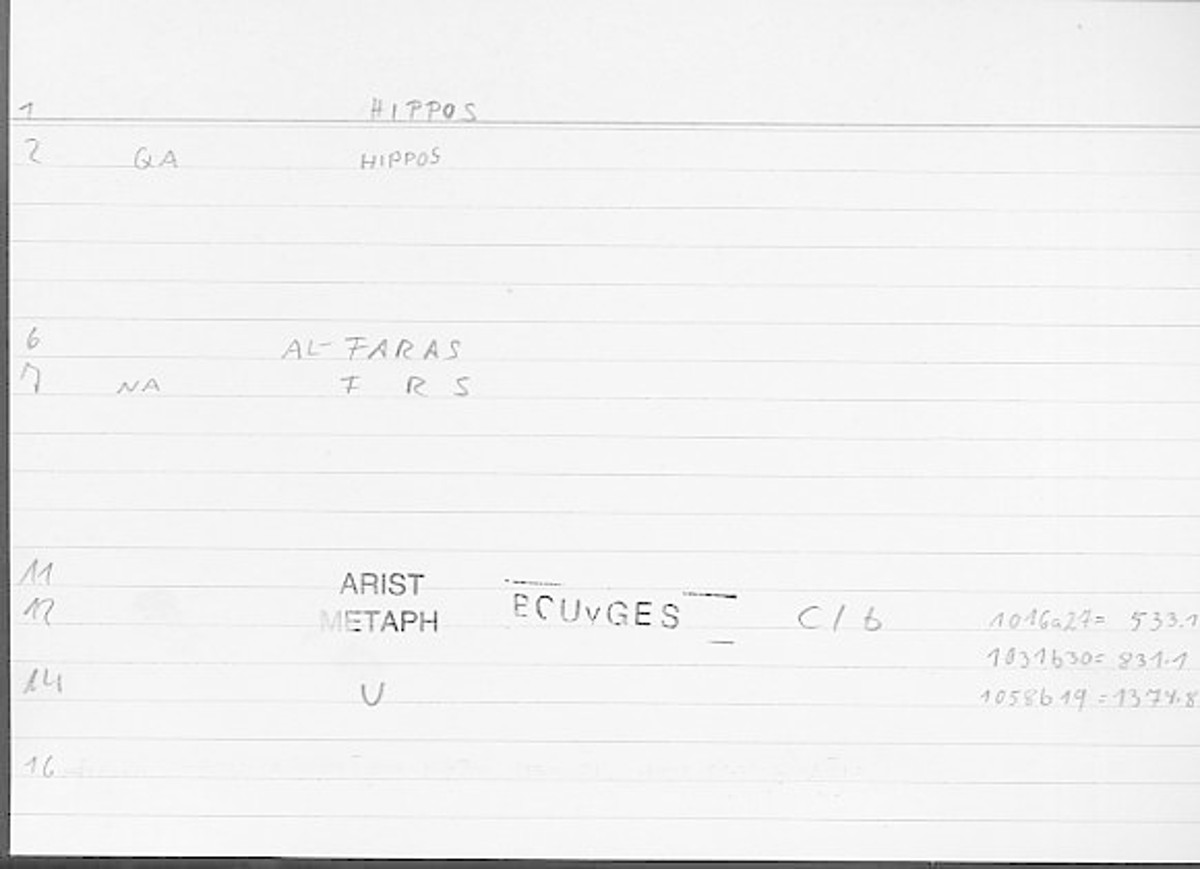 1 HIPPOS
2 QA HIPPOS
6 AL-FARAS
7 NA F R S
11 ARIST
12 METAPH ECUvGES C/b 1016a27= 533.1
1031b30= 831.1
14 U 1058b19 =1374.8
16